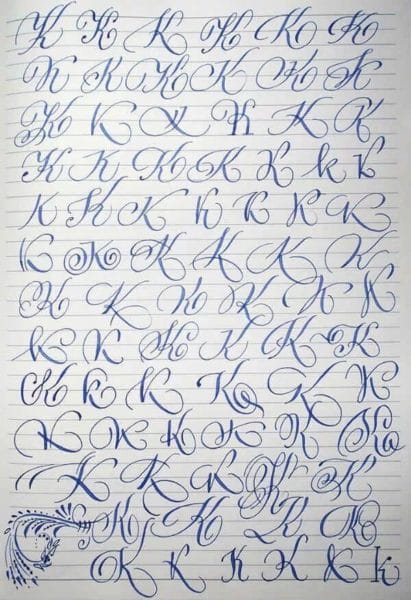 K K K K K K
K K K K K K
K K K K K K
K K K K K k K
K K K K K K K
K K K K K K
K K K K K K
k K K K K K
K k k K K K
K K K K K K
K K K K K
K K K K
K K K K K k